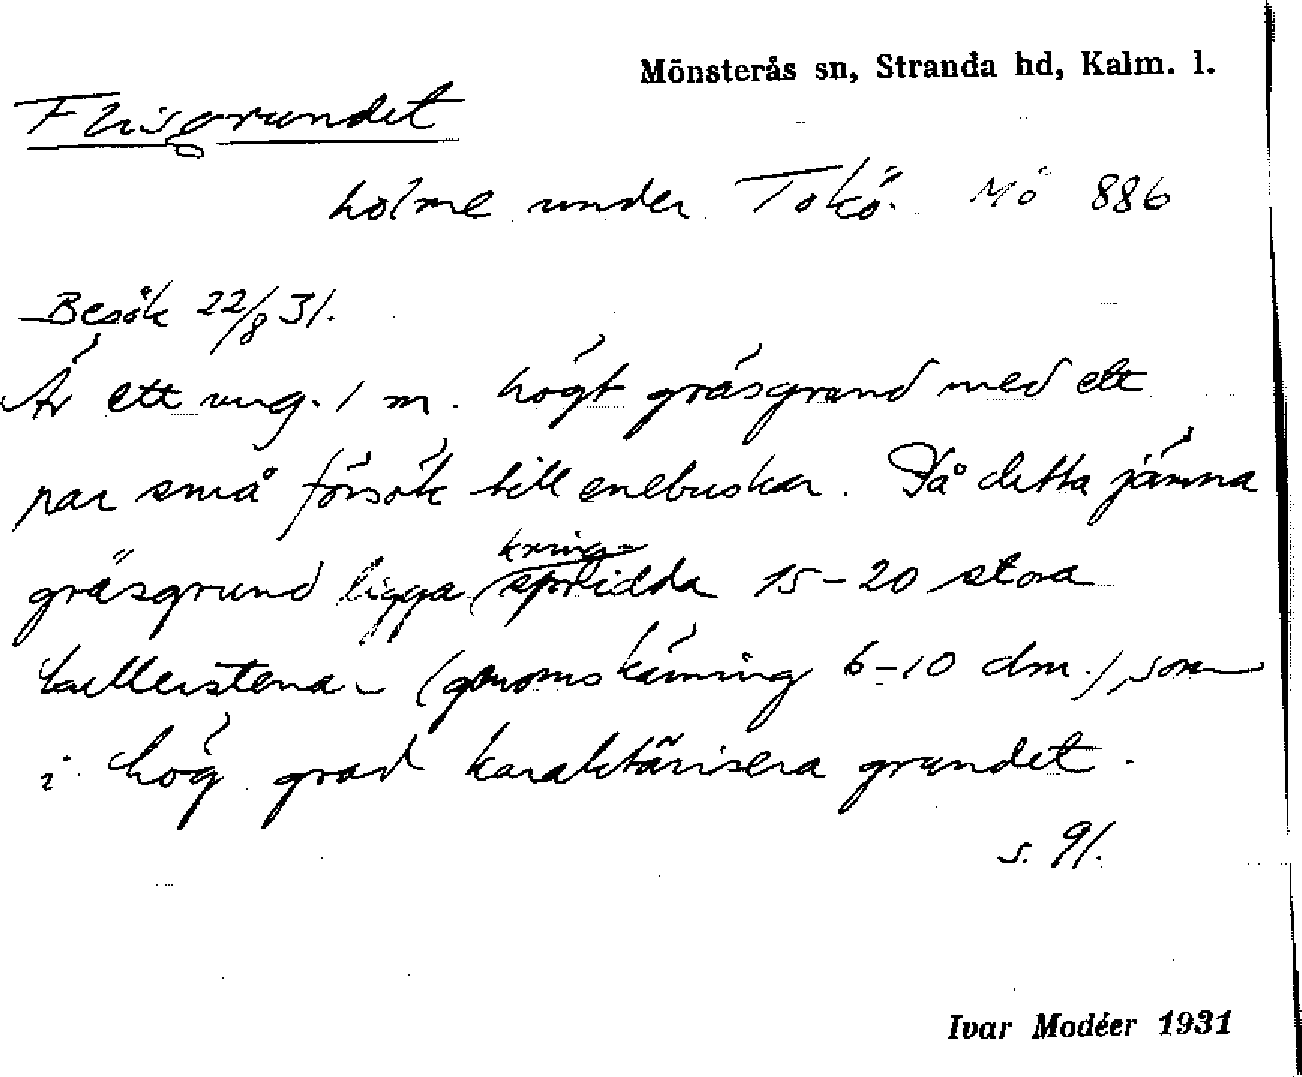 Mönsterås sn, Stranda hd, Kalm. l.
Flisgrundet
holme under Tokö. Mö 886
Besök 22/8 31.
Är ett ung. 1 m. högt gräsgrund med ett
par små försök till enebuskar. På detta jämna
gräsgrund ligga kring-
spridda 15-20 stora
kullerstenar (genomskärning 6-10 dm.), som
i hög grad karaktärisera grundet.
s. 91.
Ivar Modéer 1931